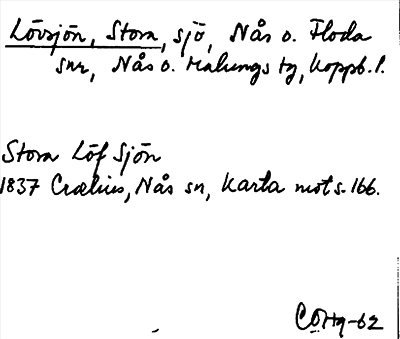 Lövsjön, Stora, sjö, Nås o. Floda
snr, Nås o. Malungs tg, Koppb. l.
Stora Löf Sjön
1837 Crælius, Nås sn, Karta mot s. 166.